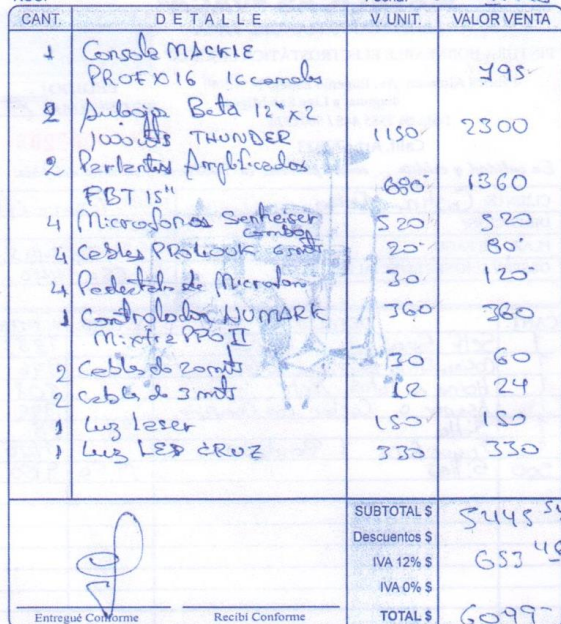 CANT. DETALLE V. UNIT. VALOR VENTA
1 Consola MACKIE
PROFX16 16 canales 795-
2 Subajo Beta 12" x2
1000wts THUNDER 1150- 2300
2 Parlantes Amplificados
FBT 15" 680- 1360
4 Microfonos Senheiser 520 520
combo
4 Cables PROLOOK 6mts 20- 80-
4 Pedestales de Microfono 30 120-
1 Controlador NUMARK 360 360
Mixtrz PRO II
2 Cables de 20mts 30 60
2 cables de 3mts 12 24
1 Luz Laser 150 150
1 Luz LED CRUZ 330 330
SUBTOTAL $ 5445 54
Descuentos $
IVA 12% $ 653 46
IVA 0% $
Entregué Conforme Recibí Conforme TOTAL $ 6099-